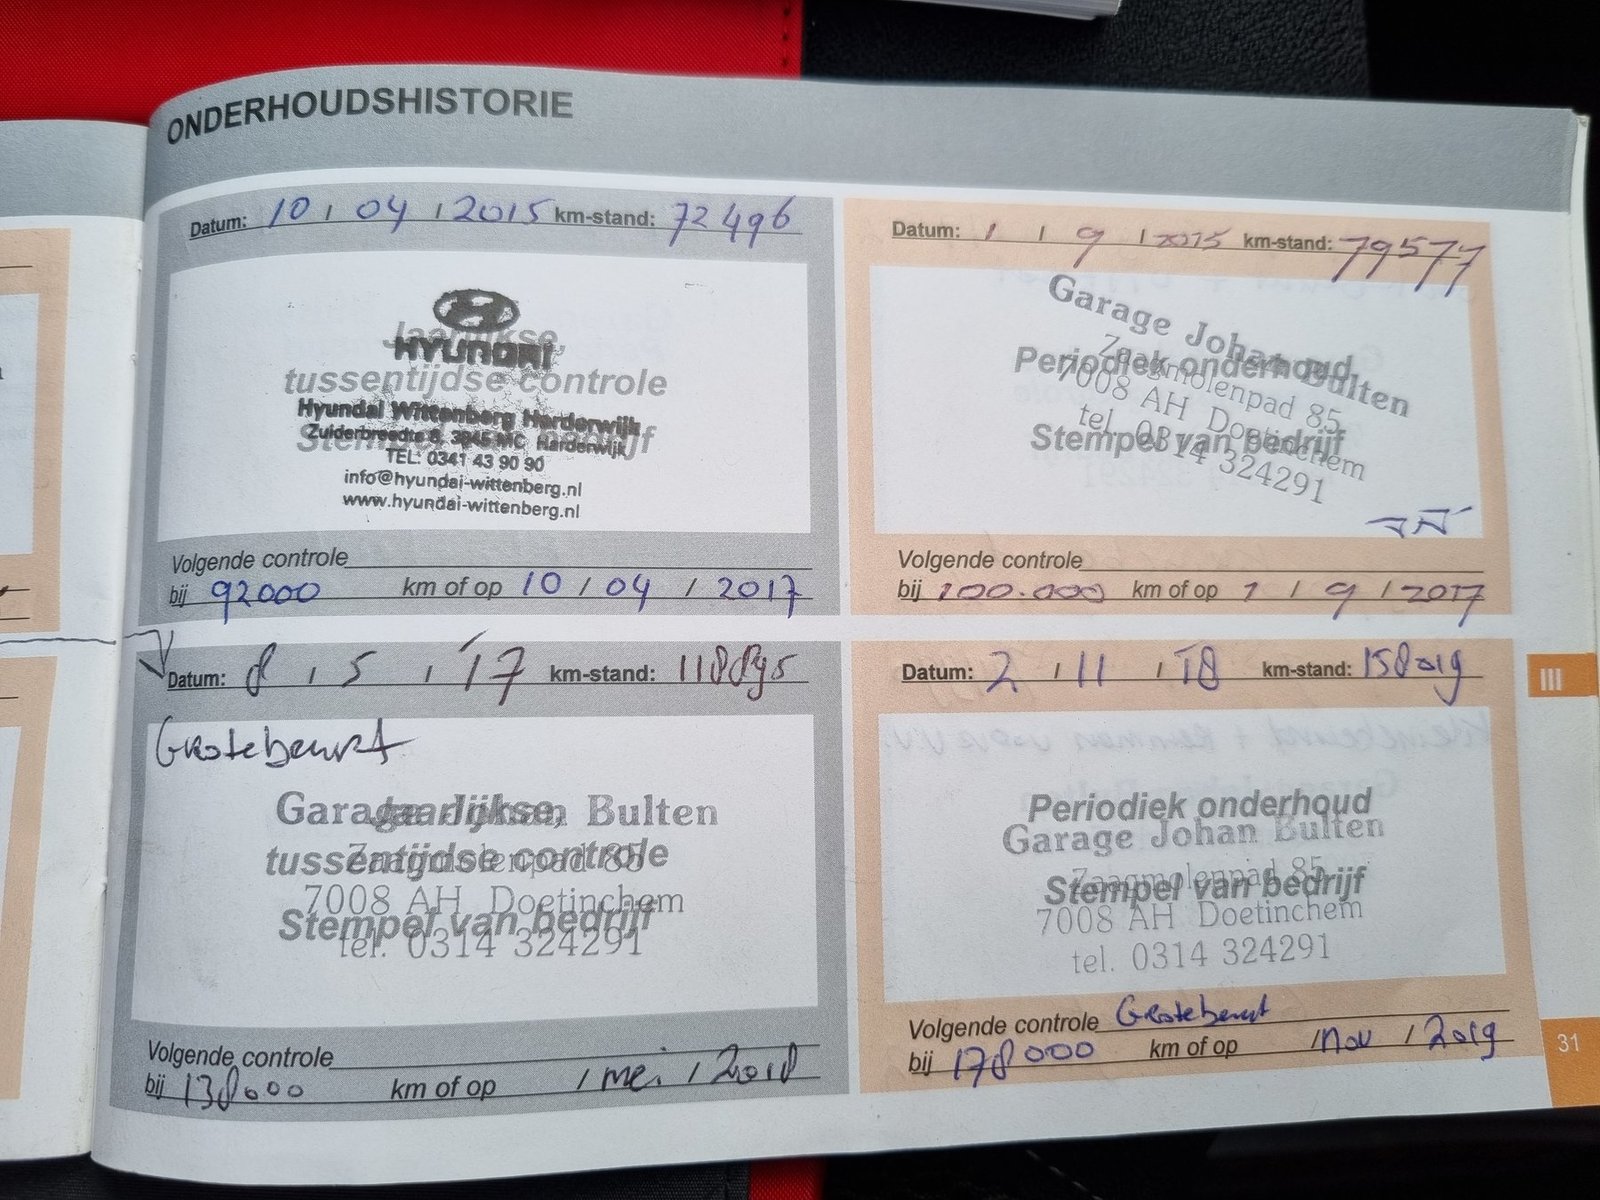 ONDERHOUDSHISTORIE
Datum: 10 / 04 / 2015 km-stand: 72496
HYUNDAI
Jaarlijkse,
tussentijdse controle
Hyundai Wittenberg Harderwijk
Zuiderbreedte 8, 3845 MC Harderwijk
Stempel van bedrijf
TEL: 0341 43 90 90
info@hyundai-wittenberg.nl
www.hyundai-wittenberg.nl
Volgende controle
bij 92000 km of op 10 / 04 / 2017
Datum: 1 / 9 / 2015 km-stand: 79577
Garage Johan Bulten
Periodiek onderhoud
Zaagmolenpad 85
7008 AH Doetinchem
Stempel van bedrijf
tel. 0314 324291
Volgende controle
bij 100.000 km of op 1 / 9 / 2017
Datum: 8 / 5 / '17 km-stand: 118895
Grotebeurt
Garage Johan Bulten
Jaarlijkse,
tussentijdse controle
Zaagmolenpad 85
7008 AH Doetinchem
Stempel van bedrijf
tel. 0314 324291
Volgende controle
bij 138000 km of op / mei / 2018
Datum: 2 / 11 / '18 km-stand: 158019
Periodiek onderhoud
Garage Johan Bulten
Zaagmolenpad 85
Stempel van bedrijf
7008 AH Doetinchem
tel. 0314 324291
Volgende controle Grotebeurt
bij 178000 km of op / nov / 2019
III
31